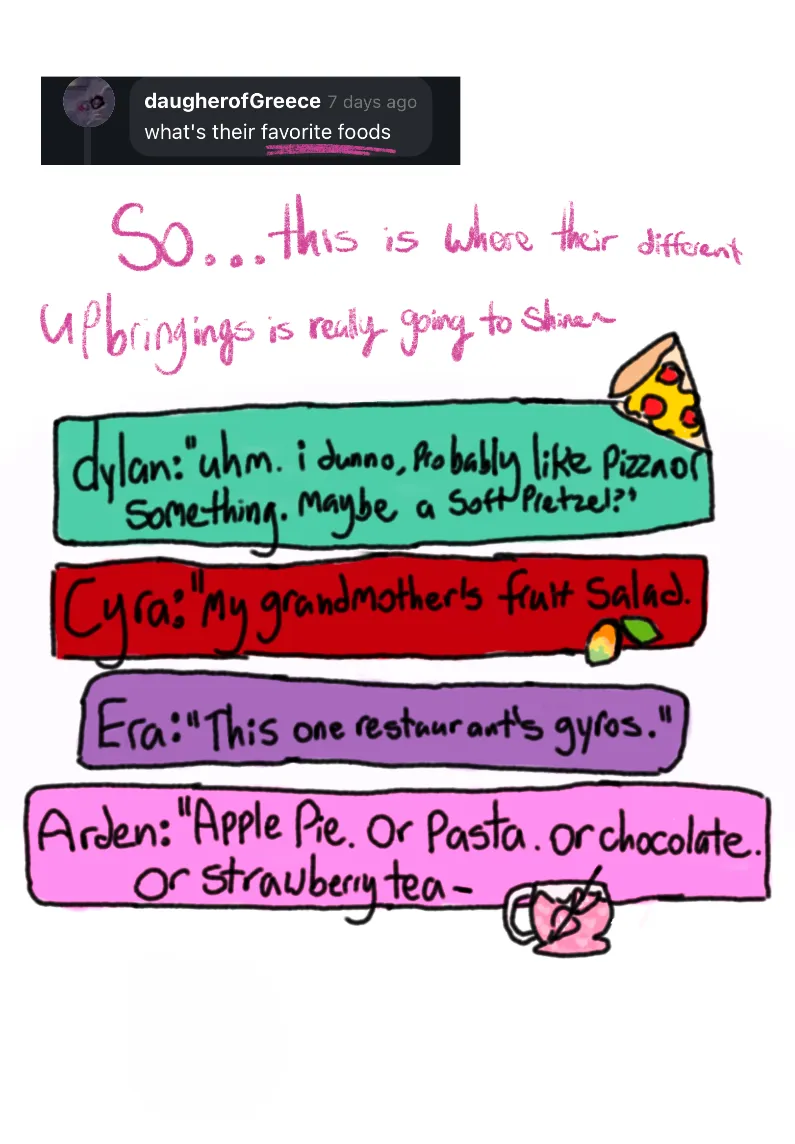 daugherofGreece 7 days ago
what's their favorite foods
So...this is where their different
upbringings is really going to shine~
dylan:"uhm. i dunno, Probably like Pizza or
Something. Maybe a Soft Pretzel?"
Cyra:"my grandmother's fruit Salad.
Era:"This one restaurant's gyros."
Arden:"Apple Pie. Or Pasta. Or chocolate.
Or strawberry tea-